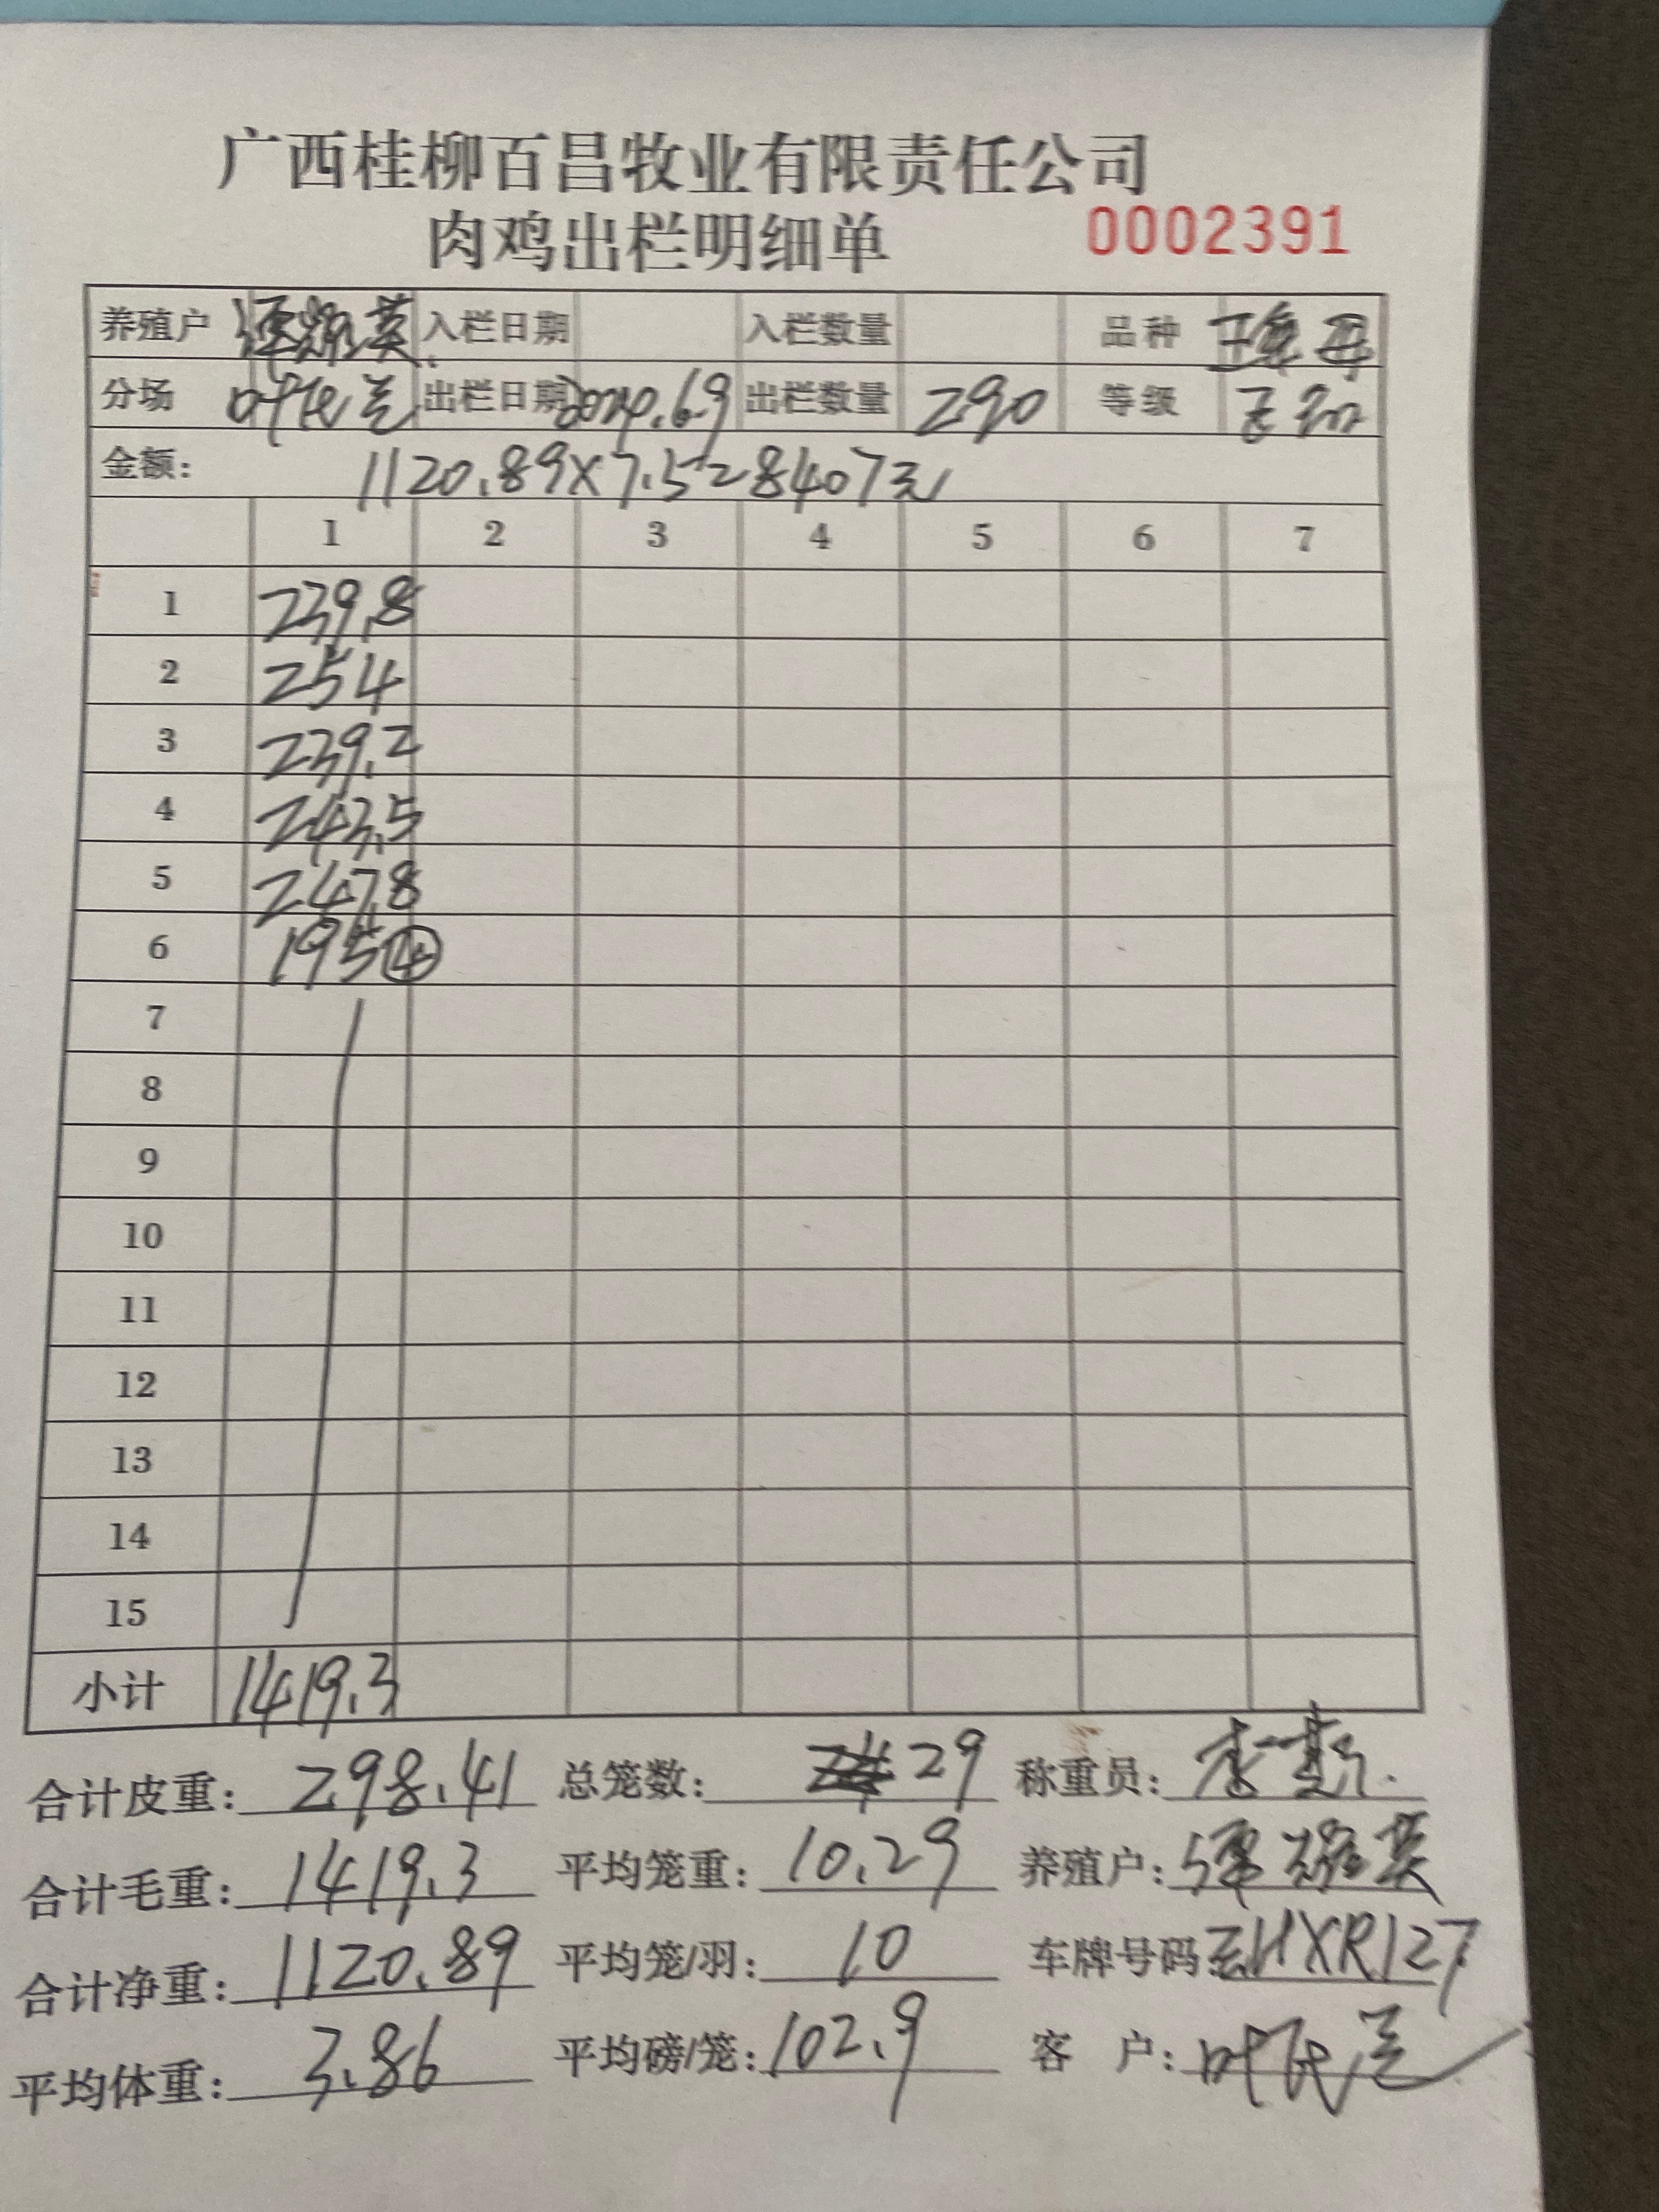 广西桂柳百昌牧业有限责任公司
肉鸡出栏明细单 0002391
养殖户 谭耀英 入栏日期 入栏数量 品种
分场 出栏日期 2024.6.9 出栏数量 290 等级
金额: 1120.89×7.5=8407元
1 2 3 4 5 6 7
1 239.8
2 254
3 239.2
4 243.5
5 247.8
6 195 ④
7
8
9
10
11
12
13
14
15
小计 1419.3
合计皮重: 298.41 总笼数: 29 称重员:
合计毛重: 1419.3 平均笼重: 10.29 养殖户: 谭耀英
合计净重: 1120.89 平均笼/羽: 10 车牌号码: HXR127
平均体重: 3.86 平均磅/笼: 102.9 客 户: